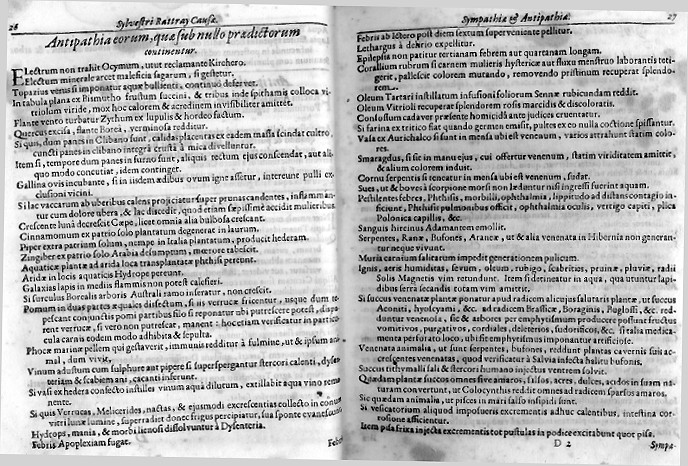 26 Sylvestri Rattray Causæ
Antipathia eorum, quæ sub nullo prædictorum
continentur.
Electrum non trahit Ocymum, utut reclamante Kirchero.
Electrum minerale arcet maleficia sagarum, si gestetur.
Topazius verus si imponatur aquæ bullienti, continuò deserver.
In tabula plana ex Bismutho frustum succini, & tribus inde spithamis colloca vi-
triolum viride, mox hoc calorem & acredinem invisibiliter amittet.
Flante vento turbatur Zythum ex lupulis & hordeo factum.
Quercus excisa, flante Borea, verminosa redditur.
Si quis, dum panes in Clibano sunt, calidai placentas ex eadem massa scindat cultro,
cuncti panes in clibano integrâ crustâ à mica divelluntur.
Item si, tempore dum panes in furno sunt, aliquis rectum ejus conscendat, aut ali-
quo modo concutiat, idem continget.
Gallina ovis incubante, si in iisdem ædibus ovum igne assetur, intereunt pulli ex-
clusioni vicini.
Si lac vaccarum ab uberibus calens projiciatur super prunas candentes, inflamman-
tur cum dolore ubera, & lac discedit, quod etiam sæpissimè accidit mulieribus.
Crescente lunâ decrescit Cæpe, licet omnia alia bulbosa crescant.
Cinnamomum ex patrio solo plantatum degenerat in laurum.
Piper extra patrium solum, nempe in Italia plantatum, producit hederam.
Zingiber ex patrio solo Arabia desumptum, mœrore tabescit.
Aquaticæ plantæ ad arida loca transplantatæ phthisi pereunt.
Aridæ in locis aquaticis Hydrope pereunt.
Galaxias lapis in mediis flammis non potest calefieri.
Si surculus Borealis arboris Australi ramo inseratur, non crescit.
Pomum in duas partes æquales dissectum, si iis verrucæ fricentur, usque dum te-
pescant conjunctis pomi partibus filo si reponatur ubi putrescere potest, dispa-
rent verrucæ, si vero non putrescat, manent: hoc etiam verificatur in particu-
cula carnis eodem modo adhibita & sepulta.
Phocæ marinæ pellem qui gestaverit, immunis redditur à fulmine, ut & ipsum ani-
mal, dum vivit,
Vinum adustum cum sulphure aut pipere si superspergantur stercori calenti, dysen-
teriam & scabiem ani, cacanti inferunt.
Si vasi ex hedera confecto instilles vinum aquâ dilutum, extillabit aqua vino rema-
nente.
Si quis Verrucas, Melicerides, nactas, & ejusmodi excrescentias collecto in conum
vitri lunæ lumine, superradiet donec frigus percipiatur, sua sponte evanescunt.
Hydrops, mania, & morbi lienosi dissolvuntur à Dysenteria.
Febris Apoplexiam fugat.
Febris
Sympathiæ & Antipathiæ. 27
Febris ab Ictero post diem sextum superveniente pellitur.
Lethargus à delirio expellitur.
Epilepsia non patitur tertianam febrem aut quartanam longam.
Corallium rubrum si carnem mulieris hystericæ aut fluxu menstruo laborantis teti-
gerit, pallescit colorem mutando, removendo pristinum recuperat splendo-
rem.
Oleum Tartari instillatum infusioni foliorum Sennæ rubicundam reddit.
Oleum Vitrioli recuperat splendorem rosis marcidis & discoloratis.
Confossum cadaver præsente homicida ante judices cruentatur.
Si farina ex tritico fiat quando germen emisit, pultes ex eo nulla coctione spissantur.
Vasa ex Aurichalco si sunt in mensa ubi est venenum, varios attrahunt statim colo-
res.
Smaragdus, si sit in manu ejus, cui offertur venenum, statim viriditatem amittit,
& alium colorem induit.
Cornu serpentis si teneatur in mensa ubi est venenum, sudat.
Sues, ut & boves à scorpione morsi non læduntur nisi ingressi fuerint aquam.
Pestilentes febres, Phthisis, morbilli, ophthalmia, lippitudo ad distans contagio in-
ficiunt, Phthisis pulmonibus officit, ophthalmia oculis, vertigo capiti, plica
Polonica capillis, &c.
Sanguis hircinus Adamantem emollit.
Serpentes, Ranæ, Bufones, Araneæ, ut & alia venenata in Hibernia non generan-
tur neque vivunt.
Muria carnium salitarum impedit generationem pulicum.
Ignis, aeris humiditas, sevum, oleum, rubigo, scabrities, pruinæ, pluviæ, radii
Solis Magnetis vim retundunt. Item si detineatur in aqua, qua utuntur lapi-
dibus serra secandis totam vim amittit.
Si succus venenatæ plantæ ponatur apud radicem alicujus salutaris plantæ, ut succus
Aconiti, hyoscyami, &c. ad radicem Brassicæ, Boraginis, Buglossi, &c. red-
duntur venenosæ, sic & arbores per emphytismum producere possunt fructus
vomitivos, purgativos, cordiales, deleterios, sudorificos, &c. si talia medica-
menta perforato loco, ubi sit emphytismus imponantur artificiose.
Venenata animalia, ut sunt serpentes, bufones, reddunt plantas cavernis suis ac-
crescentes venenatas, quod verificatur à Salvia infecta halitu bufonis.
Succus tithymalli sali & stercori humano injectus ventrem solvit.
Quædam plantæ succos omnes sive amaros, salsos, acres, dulces, acidos in suam na-
turam convertunt, ut Colocynthis reddit omnes ad radicem sparsos amaros.
Sic quædam animalia, ut pisces in mari salso insipidi sunt.
Si vesicatorium aliquod imposueris excrementis adhuc calentibus, intestina cor-
rosione afficientur.
Item pisa frixa injecta excrementis tot pustulas in podice excitabunt quot pisa.
D 2 Sympa-